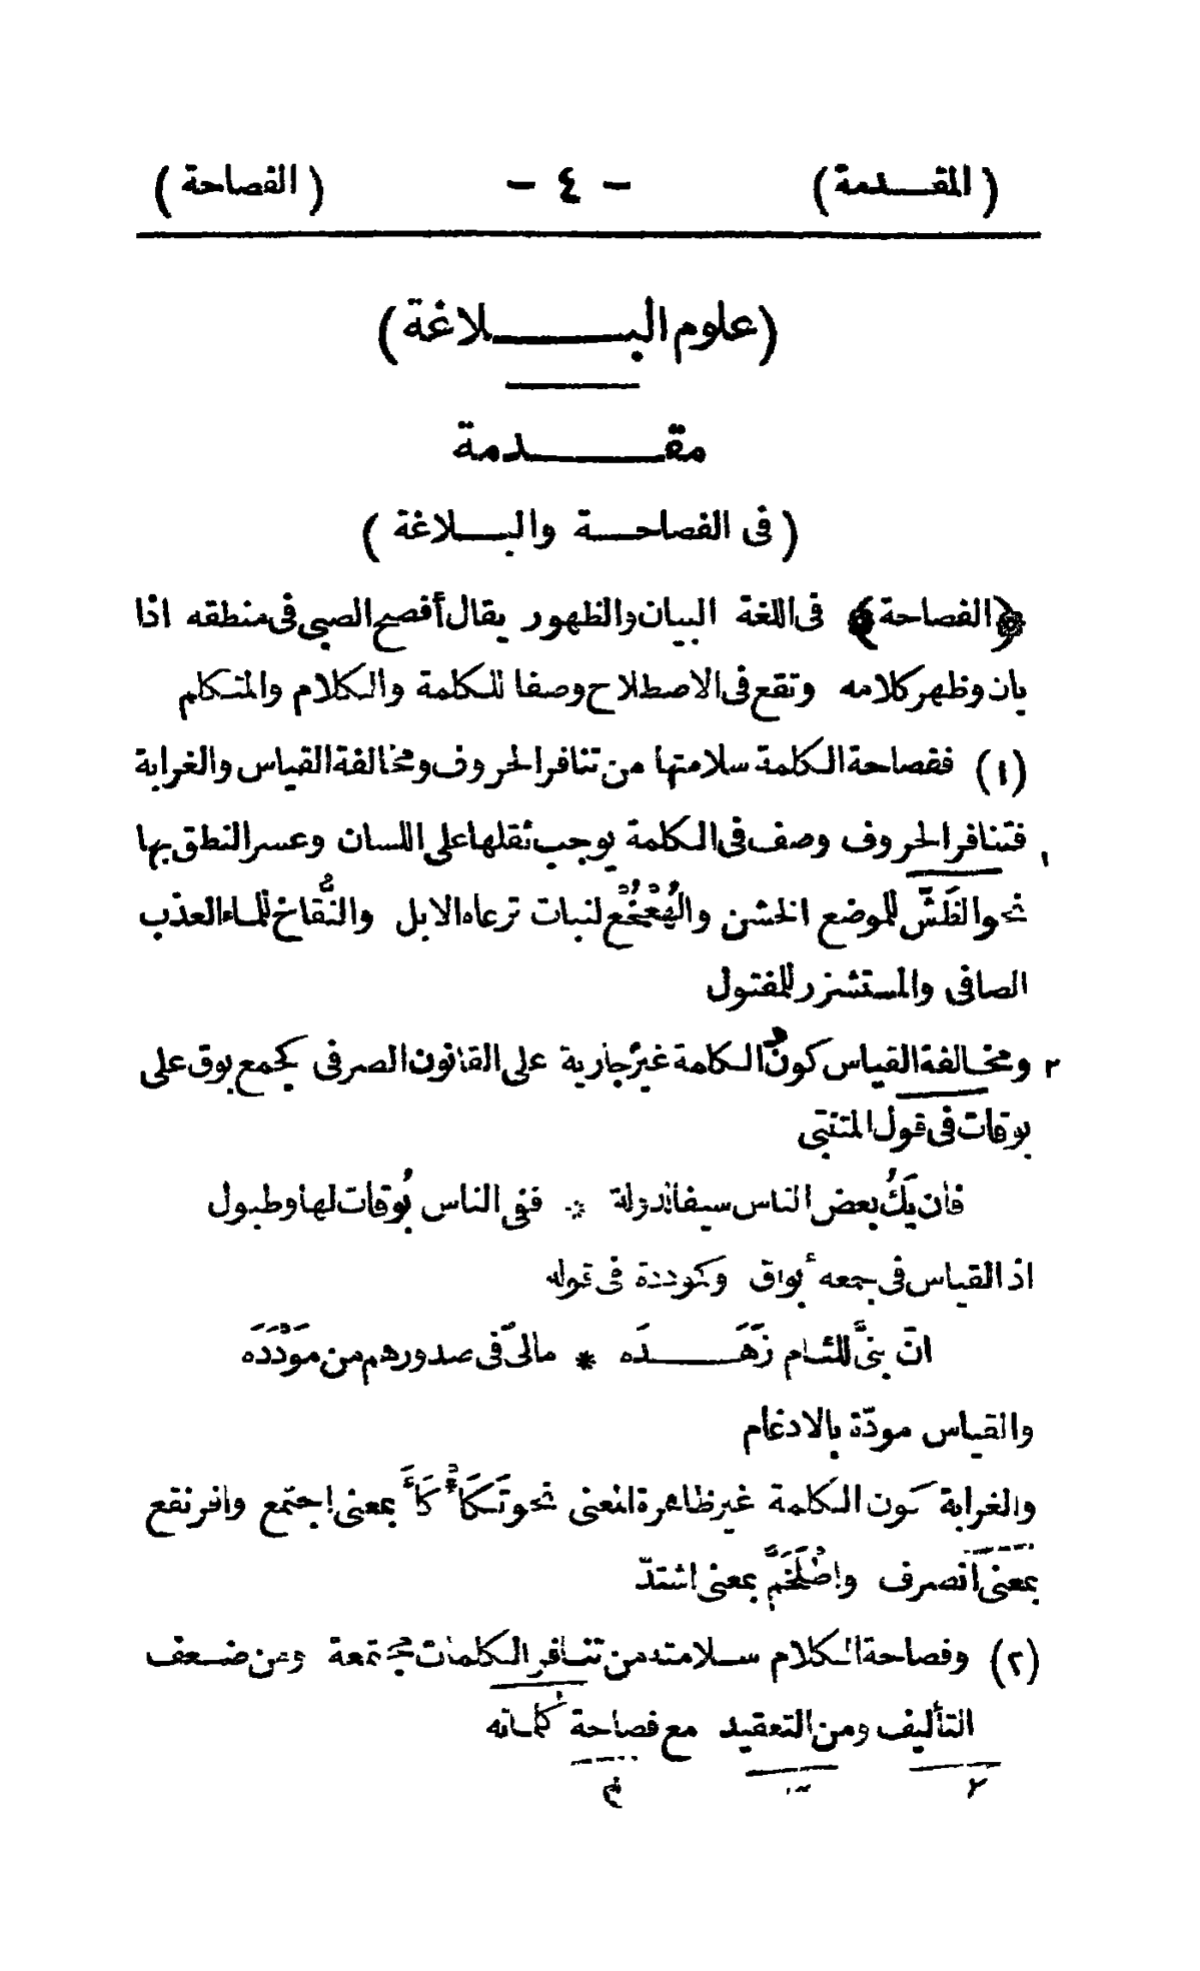 (المقدمة) - ٤ - (الفصاحة)
(علوم البلاغة)
مقدمة
(فى الفصاحة والبلاغة)
﴿الفصاحة﴾ فى اللغة البيان والظهور يقال أفصح الصبى فى منطقه اذا
بان وظهر كلامه وتقع فى الاصطلاح وصفا للكلمة والكلام والمتكلم
(١) ففصاحة الكلمة سلامتها من تنافر الحروف ومخالفة القياس والغرابة
١ فتنافر الحروف وصف فى الكلمة يوجب ثقلها على اللسان وعسر النطق بها
نحو الظَشّ للموضع الخشن والهُعْخُع لنبات ترعاه الابل والنُّقَاخ للماء العذب
الصافى والمستشزر للمفتول
٢ ومخالفة القياس كونُ الكلمة غيرَ جارية على القانون الصرفى كجمع بوق على
بوقات فى قول المتنبى
فان يَكُ بعض الناس سيفا لدولة * ففى الناس بُوقات لها وطبول
اذ القياس فى جمعه أبواق وكموددة فى قوله
انّ بنىَّ للئام زَهَدَه * مالىَ فى صدورهم من مَوْدَدَه
والقياس مودّة بالادغام
والغرابة كون الكلمة غير ظاهرة المعنى نحو تَكَأْكَأَ بمعنى اجتمع وافرنقع
بمعنى انصرف واطْلَخَمَّ بمعنى اشتدّ
(٢) وفصاحة الكلام سلامته من تنافر الكلمات مجتمعة ومن ضعف
التأليف ومن التعقيد مع فصاحة كلماته
٢ ٣ ٤